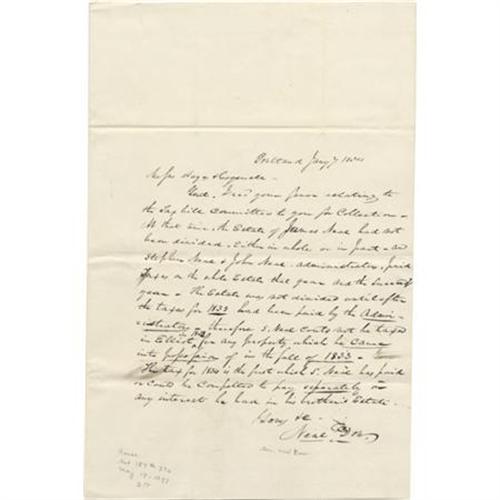 Portland Jany 7 1834
Messrs Hayes & Cogswell -
Gent. I recd your favor relating to
the Tax bill committed to you for Collection -
At that time the Estate of James Neal had not
been divided - Either in whole or in part - and
Stephen Neal & John Neal - administrators, paid
taxes on the whole Estate that year and the
year - The Estate was not divided until after
the taxes for 1833 had been paid by the Admin-
istrators - therefore S. Neal could not be taxed
in Elliot, for any property, which he came
into possession of in the fall of 1833 -
The tax for 1834 is the first which S. Neal has paid
or could be compelled to pay separately on
any interest he had in his brother's Estate -
Yours &c -
Neal Dow